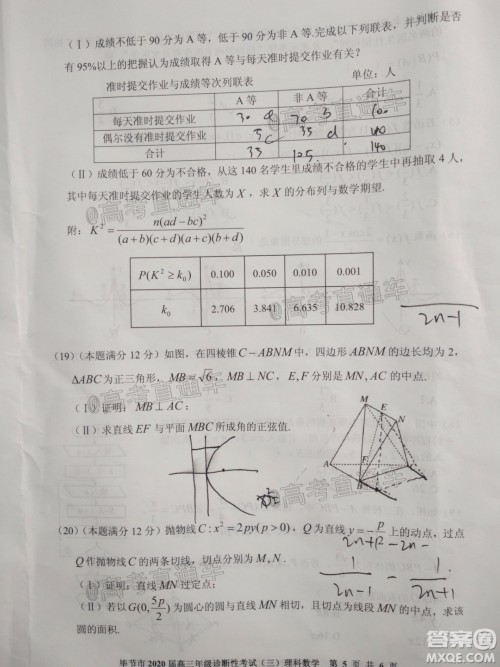 (Ⅰ)成绩不低于 90 分为 A 等，低于 90 分为非 A 等.完成以下列联表，并判断是否
有 95%以上的把握认为成绩取得 A 等与每天准时提交作业有关？
准时提交作业与成绩等次列联表 单位：人
A 等 非 A 等 合计
每天准时提交作业 30 70 100
偶尔没有准时提交作业 5 c 35 d
合计 35 105 140
(Ⅱ)成绩低于 60 分为不合格，从这 140 名学生里成绩不合格的学生中再抽取 4 人，
其中每天准时提交作业的学生人数为 X ，求 X 的分布列与数学期望.
附：K²=n(ad-bc)²/((a+b)(c+d)(a+c)(b+d))
P(K²≥k₀) 0.100 0.050 0.010 0.001
k₀ 2.706 3.841 6.635 10.828
2n-1
(19)(本题满分 12 分)如图，在四棱锥 C-ABNM 中，四边形 ABNM 的边长均为 2，
ΔABC 为正三角形，MB=√6，MB⊥NC，E,F 分别是 MN,AC 的中点.
(Ⅰ)证明：MB⊥AC；
(Ⅱ)求直线 EF 与平面 MBC 所成角的正弦值.
M
E
N
A
F
C
B
(20)(本题满分 12 分)抛物线 C:x²=2py(p>0)，Q 为直线 y=-p/2 上的动点，过点
Q 作抛物线 C 的两条切线，切点分别为 M,N.
(Ⅰ)证明：直线 MN 过定点；
(Ⅱ)若以 G(0,5p/2) 为圆心的圆与直线 MN 相切，且切点为线段 MN 的中点，求该
圆的面积.
1/(2n-1) - 1/
毕节市 2020 届高三年级诊断性考试(三)理科数学 第 5 页 共 6 页
@高考直通车
答案圈